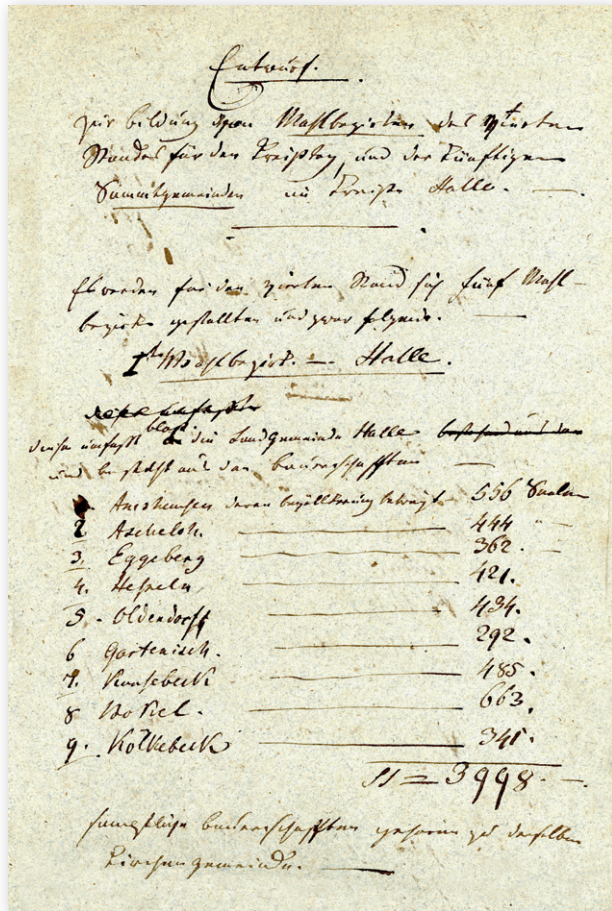 Entwurf.
zur bildung von Wahlbezirken des vierten
Standes für den Kreistag, und der künftigen
Sammtgemeinden im Kreise Halle. —
Es werden für den vierten Stand sich fünf Wahl-
bezirke gestallten und zwar folgende. —
1ter Wahlbezirk. — Halle.
dieser umfaßt
dieser umfaßt bloß die Landgemeinde Halle bestehend aus den
und besteht aus den bauerschafften —
Amshausen deren bevölkerung beträgt 556 Seelen
2 Ascheloh. 444 "
3. Eggeberg 362. "
4. Hesseln, 421.
5. Oldendorff 434.
6 Gartenisch. 292.
7. Künsebeck 485.
8 Hörste.
9. Kölkebeck 341.
663.
SS = 3998. —
sämmtliche bauerschafften gehören zu derselben
Kirchengemeinde. —